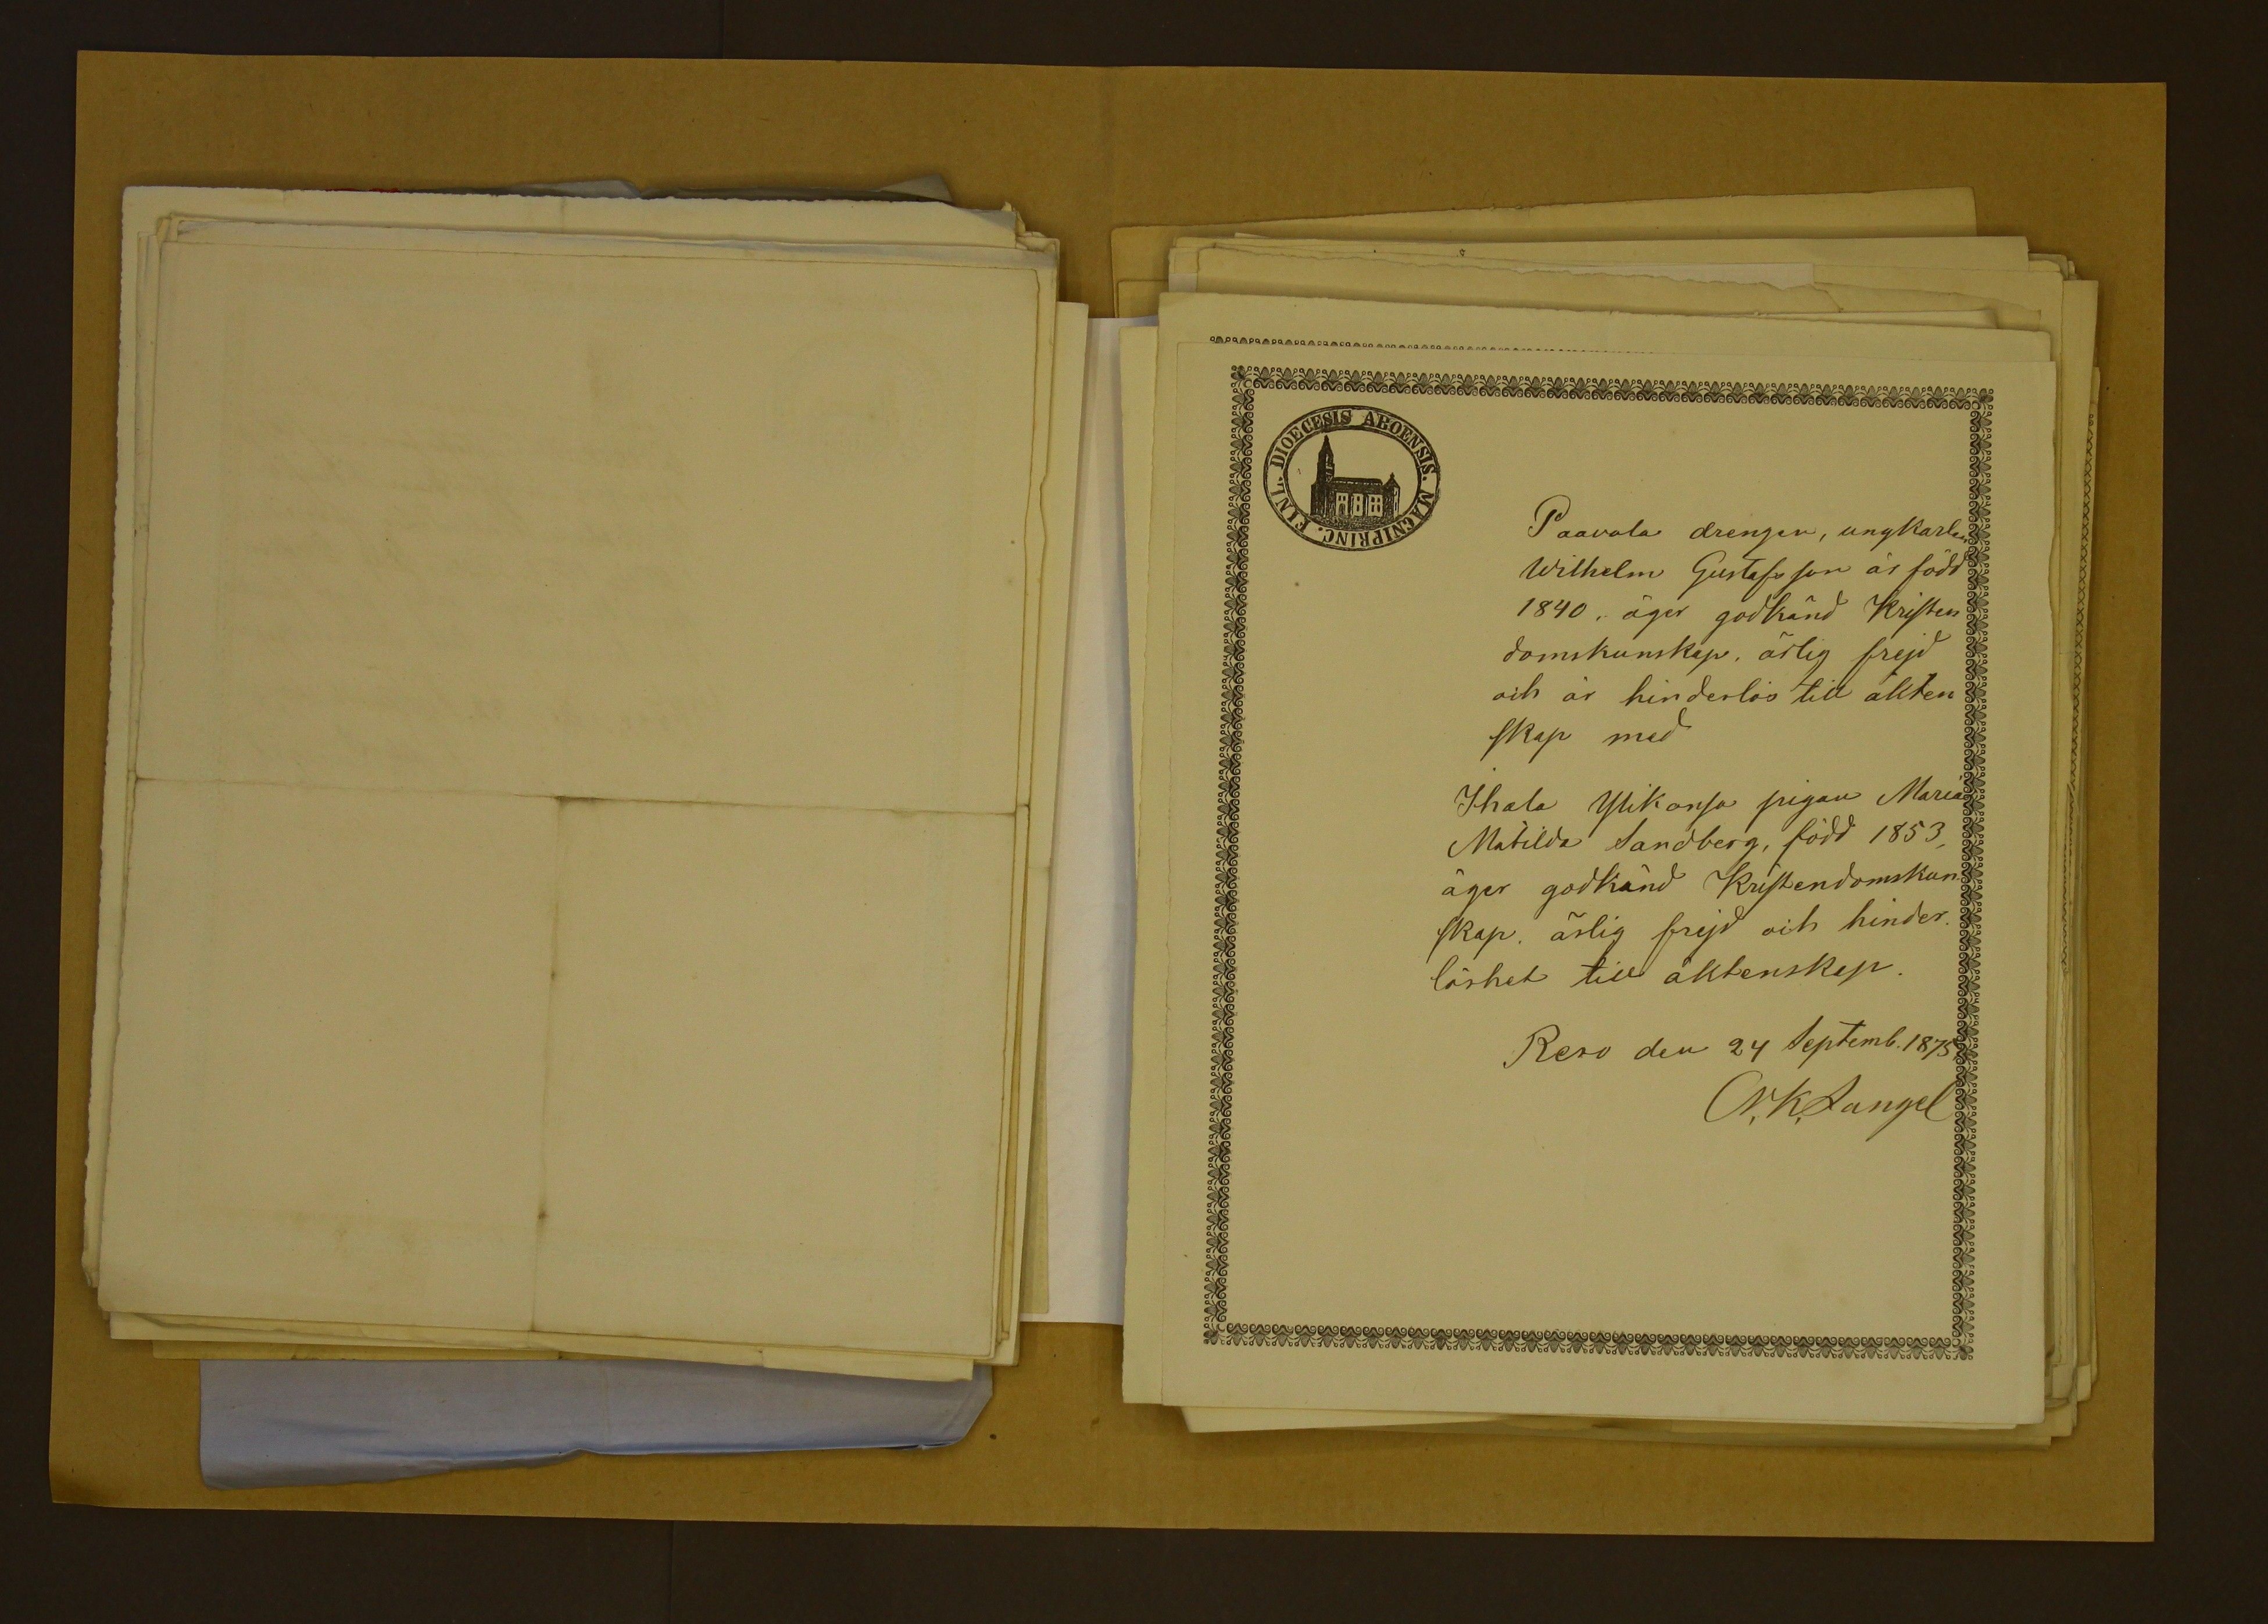 DIOECESIS ABOENSIS. MAGNIPRINC. FINL.
Paavola drengen, ungkarlen
Wilhelm Gustafsson är född
1840. äger godkänd Kristen
domskunskap. ärlig frejd
och är hinderlös till äkten
skap med
Ihala Ylikonsa pigan Maria
Matilda Sandberg, född 1853,
äger godkänd Kristendomskun
skap. ärlig frejd och hinder.
löshet till äktenskap.
Reso den 24 Septemb. 1875,
K. Langel